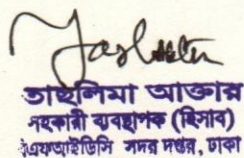 তাছলিমা আক্তার
সহকারী ব্যবস্থাপক (হিসাব)
বিএফআইডিসি সদর দপ্তর, ঢাকা